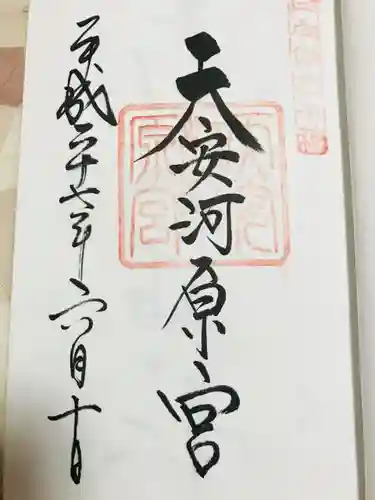 天安河原宮
平成二十七年六月十日